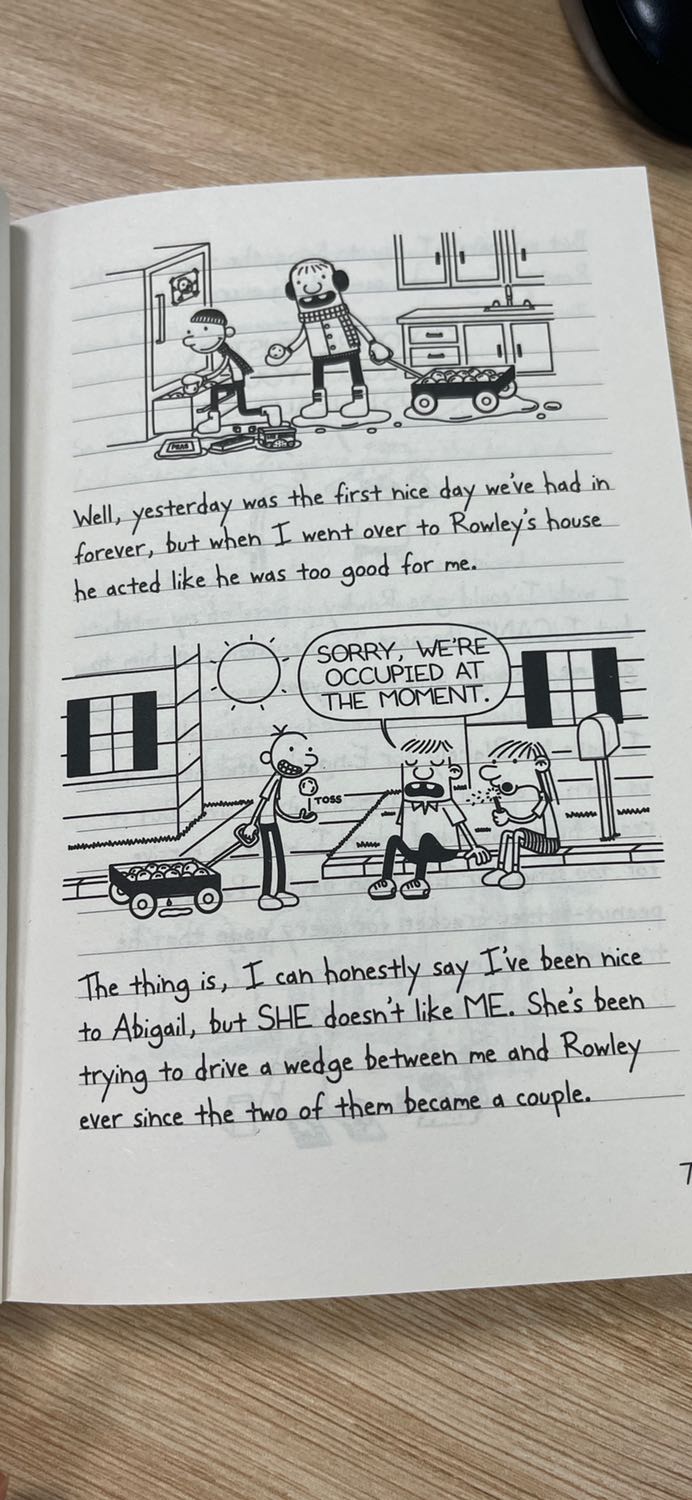 PEAS
Well, yesterday was the first nice day we've had in
forever, but when I went over to Rowley's house
he acted like he was too good for me.
SORRY, WE'RE
OCCUPIED AT
THE MOMENT.
TOSS
The thing is, I can honestly say I've been nice
to Abigail, but SHE doesn't like ME. She's been
trying to drive a wedge between me and Rowley
ever since the two of them became a couple.
7